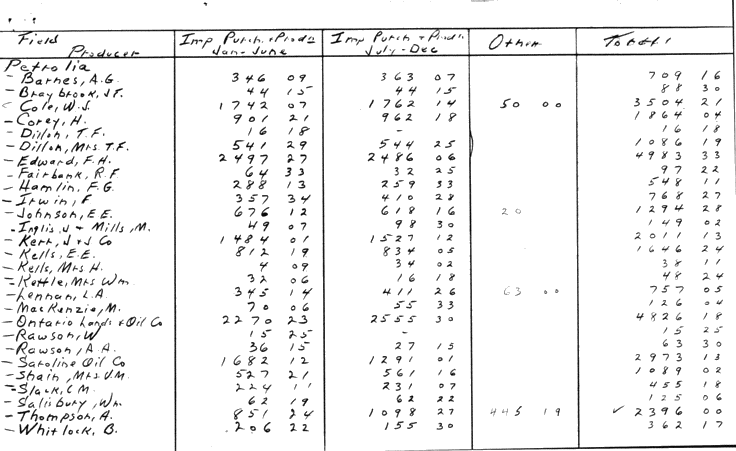 Field Producer Imp Purch. + Prod'n Jan-June Imp Purch + Prod'n July-Dec Other Total
Petrolia
- Barnes, A.G. 346 09 363 07 709 16
- Braybrook, J.F. 44 15 44 15 88 30
Cole, W.J. 1742 07 1762 14 50 00 3504 21
- Corey, H. 901 21 962 18 1864 04
- Dillon, T.F. 16 18 - 16 18
- Dillon, Mrs T.F. 541 29 544 25 1086 19
- Edward, F.H. 2497 27 2486 06 4983 33
- Fairbank, R.F 64 33 32 25 97 22
- Hamlin, F.G. 288 13 259 33 548 11
- Irwin, F 357 34 410 28 768 27
- Johnson, E.E. 676 12 618 16 20 1294 28
- Inglis J + Mills, M. 49 07 98 30 149 02
- Kerr, J + J Co 1484 01 1527 12 2011 13
- Kells, E.E. 812 19 834 05 1646 24
- Kells, Mrs H. 4 09 34 02 38 11
- Kettle, Mrs Wm. 32 06 16 18 48 24
- Lennan, L.A. 345 14 411 26 63 00 757 05
- MacKenzie, M. 70 06 55 33 126 04
- Ontario Lands + Oil Co 2270 23 2555 30 4826 18
- Rawson, W 15 25 - 15 25
- Rawson, A.A. 36 15 27 15 63 30
- Saroline Oil Co 1682 12 1291 01 2973 13
- Shain, Mrs V.M. 527 21 561 16 1089 02
- Slack, C M. 224 11 231 07 455 18
- Salisbury, Wm. 62 19 62 22 125 06
- Thompson, A. 851 24 1098 27 445 19 ✓ 2396 00
- Whitlock, B. 206 22 155 30 362 17